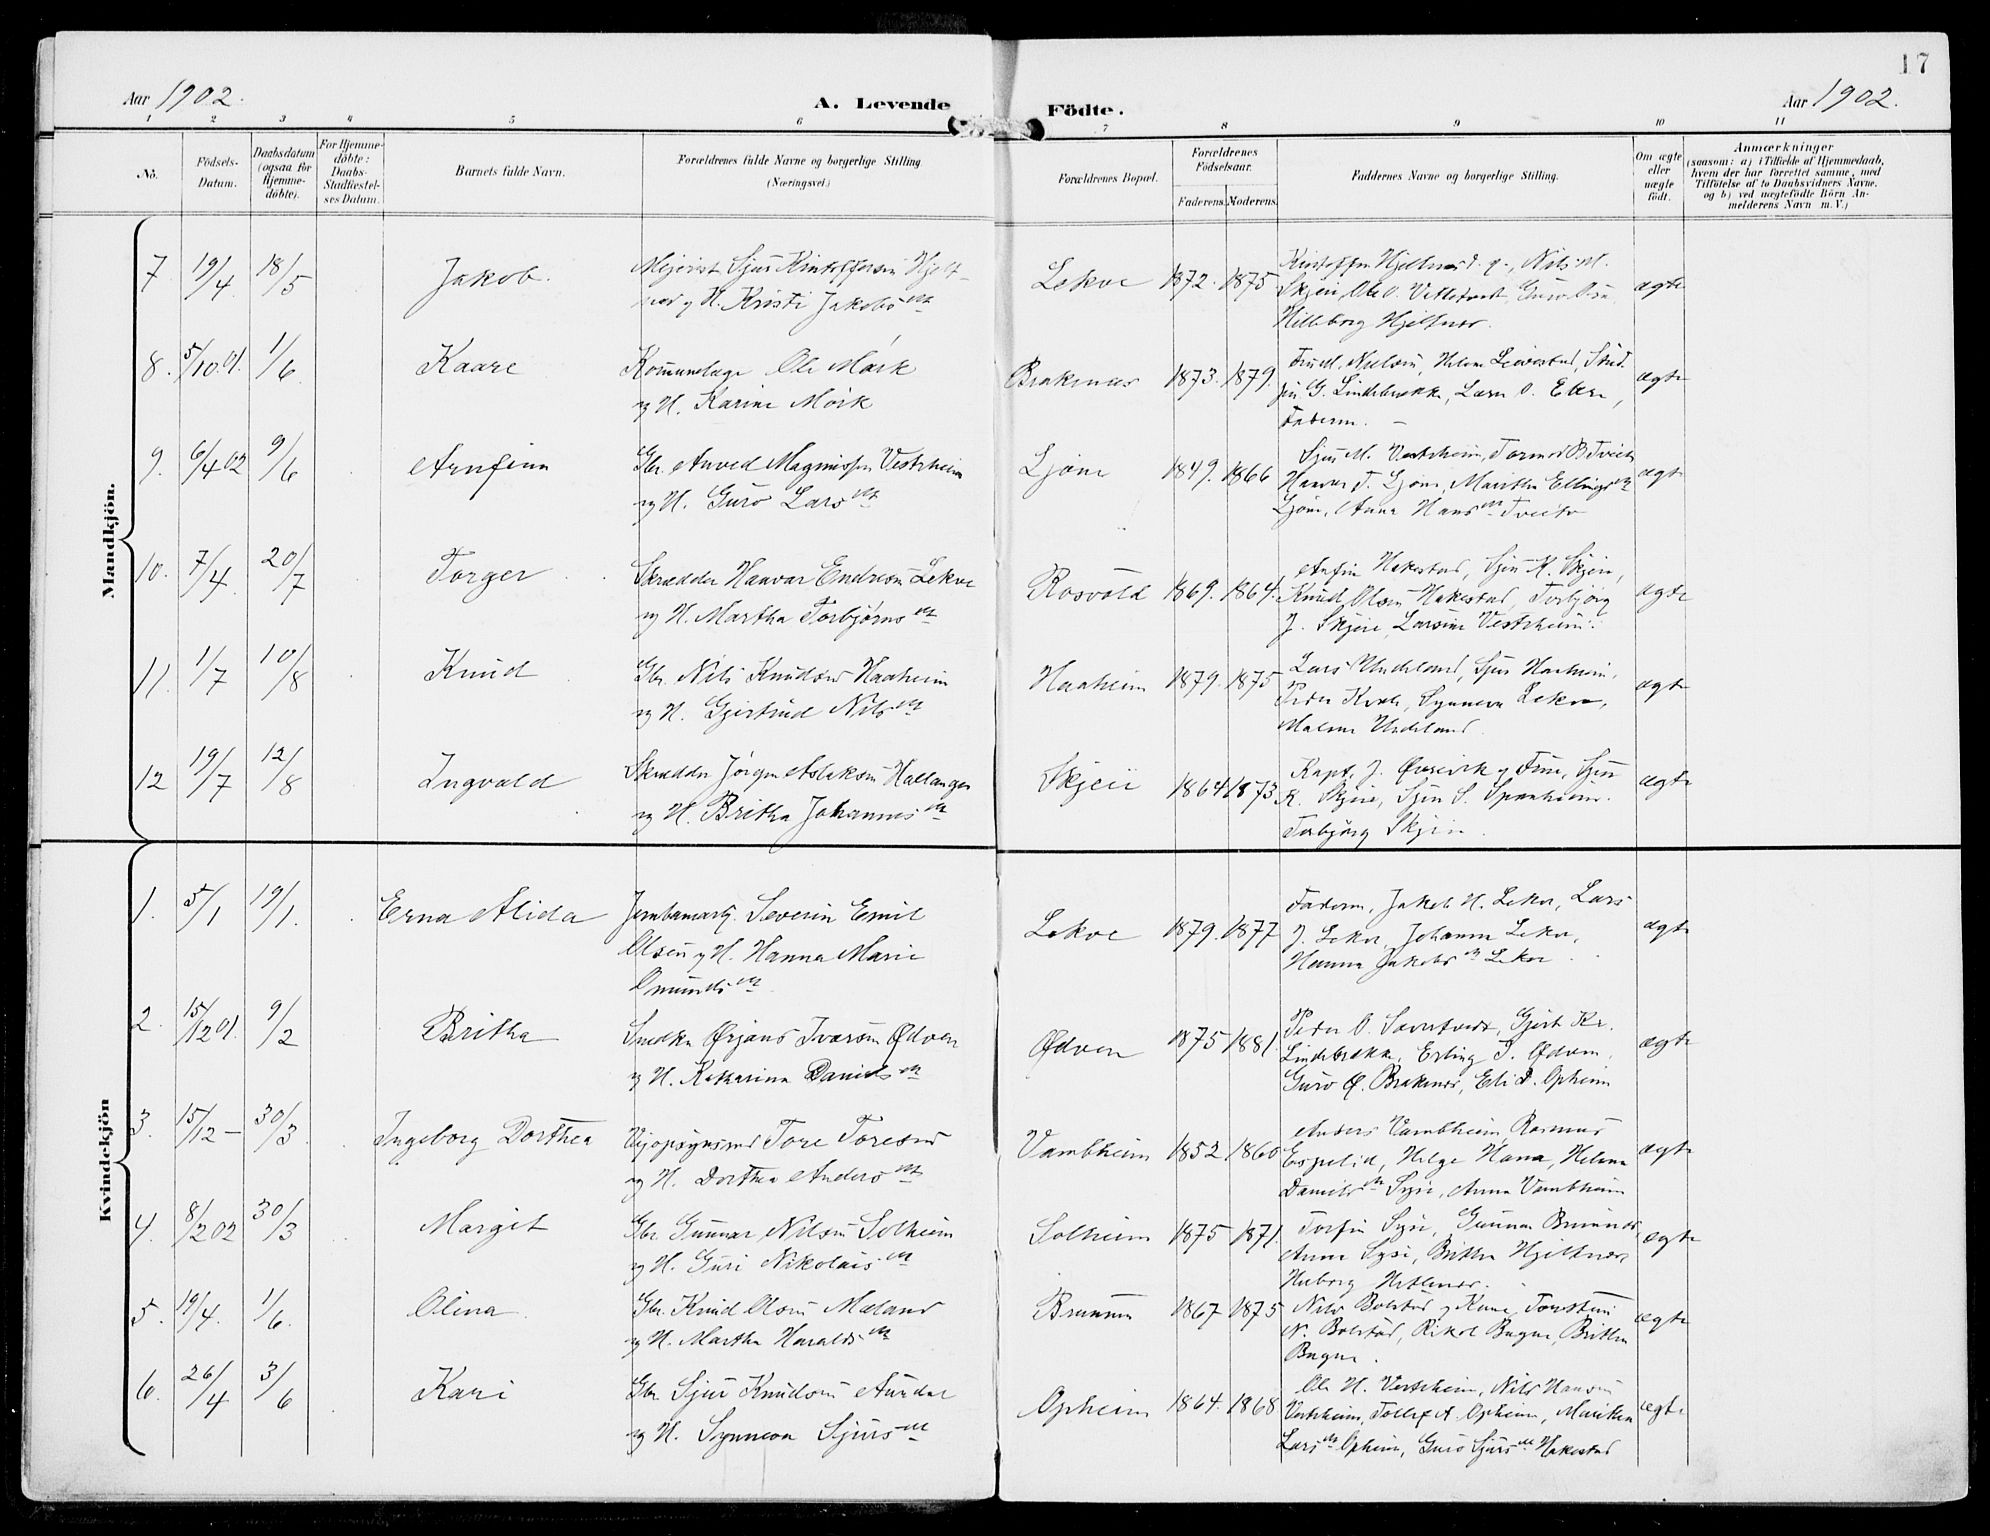 17
Aar 1902. A. Levende Födte. Aar 1902.
1 2 3 4 5 6 7 8 9 10 11
No. Födsels-Datum. Daabsdatum (ogsaa for Hjemme-döbte). For Hjemme-döbte: Daabs-Stadfæstel-ses Datum. Barnets fulde Navn. Forældrenes fulde Navne og borgerlige Stilling (Næringsvei.) Forældrenes Bopæl. Forældrenes Födselsaar. Faderens. Moderens. Faddernes Navne og borgerlige Stilling. Om ægte eller uægte födt. Anmærkninger (saasom: a) i Tilfælde af Hjemmedaab, hvem der har forrettet samme, med Tilföielse af to Daabsvidners Navne, og b) ved uægtefödte Börn An-melderens Navn m. V.)
Mandkjön.
7. 19/4 18/5 Jakob. Mejerist Sjur Kristoffersen Hjelt-
nes og H. Kristi Jakobsdt
Lekve 1872. 1875
Skjeie, Ole O.
Hilleborg Hjeltnes.
ægte
8. 5/10 01. 1/6 Kaare Ole Mørk
og H. Karine Mørk
Braknæs 1873. 1879.
G. Lindebrække, Lars O.
Faderen. —
ægte
9. 6/4 02 9/6 Arnfinn Gbr. Anved Magnussen Vestrheim
og H. Guro Larsdt
Ljøne 1849. 1866
Sjur M. Vestrheim, Tormod B Tveito
Haavar T. Ljone, Maritha Ellingsdt
Ljone, Anna Hansdt Tveito
ægte
10. 7/4 20/7 Torger Skrædder Haavar Endresen Lekve
og H. Martha Torbjørnsdt
Rosvold 1869. 1864.
Hakestad, Sjur K. Skjeie,
Knud Olsen Hakestad, Torbjørg
J. Skjeie, Larsine Vestrheim.
ægte
11. 1/7 10/8 Knud Gbr. Nils Knudsen Haaheim
og H. Gjertrud Nilsdt
Haaheim 1879. 1875
Lars Undeland, Sjur Haaheim,
Peder Kvale, Synneva Lekve,
Undeland.
ægte
12 19/7 12/8 Ingvald Skrædder Jørgen Aslaksen Hallanger
og H. Britha Johannesdt
Skjeie 1864 1873
Kapt. J. og Frue, Sjur
K. Skjeie, Sjur S. Spanheim.
Torbjørg Skjeie.
ægte
Kvindekjön
1. 5/1 19/1. Erna Alida Severin Emil
Olsen og H. Hanna Marie
Lekve 1879. 1877
Faderen, Jakob H. Lekve, Lars
J. Lekve, Johanna Lekve,
Hanna Jakobsdt Lekve.
ægte
2. 15/12 01. 9/2 Britha Snedker Ørjans Ivarsen Ødven
og H. Katarina Danielsdt
Ødven 1875 1881.
Peder O. Gjert Kr.
Lindebrække, Erling T. Ødven,
Guro Ø. Braknæs, Eli D. Opheim
ægte
3. 15/12 — 30/3. Ingeborg Dorthea Vejopsynsmd Tore Toresen
og H. Dorthea Andersdt
Vambheim 1852 1860
Anders Vambheim, Rasmus
Espelid, Helge Hana, Helena
Danielsdt Syse, Anna Vambheim
ægte
4. 8/2 02 30/3 Margit Gbr. Gunnar Nilsen Solheim
og H. Guri Nikolaisdt
Solheim 1875 1871.
Torfin Syse, Gunnar
Anna Syse, Britha Hjeltnes,
ægte
5. 19/4. 1/6. Olina. Gbr. Knud Olsen Mæland
og H. Martha Haraldsdt
1867 1875
Nils Bolstad og Kone, Torstein
N. Bolstad, Rikol Bagne, Britha
Bagne.
ægte
6. 26/4 3/6 Kari Gbr. Sjur Knudsen Aurdal
og H. Synneva Sjursdt
Opheim 1864. 1868
Ole H. Vestrheim, Nils Hansen
Vestrheim, Tollef A. Opheim,
Larsdt Opheim, Guro Sjursdt Hakestad
ægte